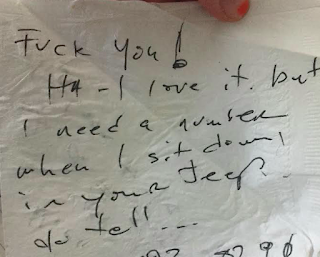 Fuck you!
HA - I love it. but
I need a number
when I sit down
in your Jeep..
do tell...